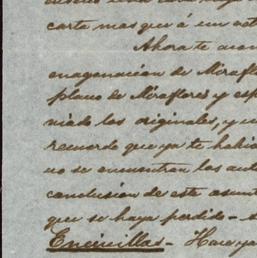 carta mas que á un
Ahora te
enagenación de Miraflo
plano de Miraflores y esp
los originales, y
recuerdo que ya te habia
no se encontran los aut
conclusion de este asunt
que se haya perdido -
Encinillas - Hace ya